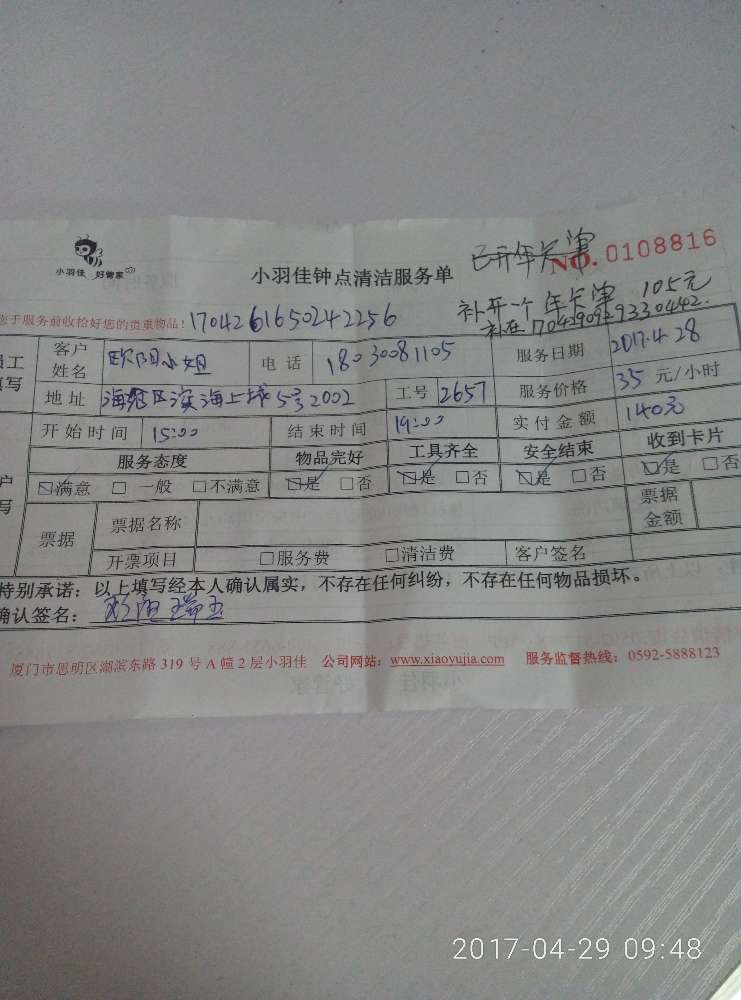 小羽佳 好管家
小羽佳钟点清洁服务单
已开年卡单
NO. 0108816
补开一个年卡单 105元
补在17042909293304442.
您于服务前收拾好您的贵重物品!
1704261650242256
员工
填写
客户姓名 欧阳小姐 电话 18030081105 服务日期 2017.4.28
地址 海沧区滨海上城5号2002 工号 2657 服务价格 35 元/小时
开始时间 15:00 结束时间 19:00 实付金额 140元
服务态度 物品完好 工具齐全 安全结束 收到卡片
☑满意 □一般 □不满意 ☑是 □否 ☑是 □否 ☑是 □否 ☑是 □否
户
写
票据 票据名称 票据金额
开票项目 □服务费 □清洁费 客户签名
特别承诺：以上填写经本人确认属实，不存在任何纠纷，不存在任何物品损坏。
确认签名： 欧阳瑞玉
厦门市思明区湖滨东路 319 号 A 幢 2 层小羽佳 公司网站：www.xiaoyujia.com 服务监督热线：0592-5888123
2017-04-29 09:48